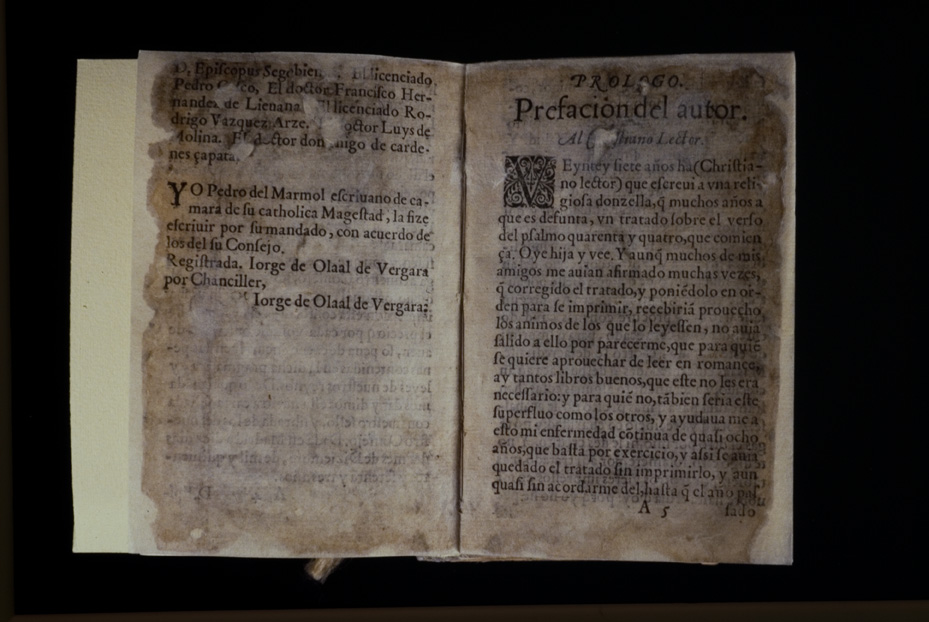 D, Episcopus Segobien. El licenciado
Pedro Gasco, El doctor Francisco Her-
nandez de Lieuana. El licenciado Ro-
drigo Vazquez Arze. octor Luys de
Molina. El doctor don nigo de carde-
nes çapata.
YO Pedro del Marmol escriuano de ca-
mara de su catholica Magestad, la fize
escriuir por su mandado, con acuerdo de
los del su Consejo.
Registrada. Iorge de Olaal de Vergara
por Chanciller,
Iorge de Olaal de Vergara:
PROLOGO.
Prefacion del autor.
Al stiano Lector.
VEyntey siete años ha (Christia-
no lector) que escreui a vna reli-
giosa donzella, q̃ muchos años a
que es defunta, vn tratado sobre el verso
del psalmo quarenta y quatro, que comien
ça. Oye hija y vee. Y aunq̃ muchos de mis
amigos me auian afirmado muchas vezes,
q̃ corregido el tratado, y poniẽdolo en or-
den para se imprimir, recebiriã prouecho
los animos de los que lo leyessen, no auia
salido a ello por parecerme, que para quiẽ
se quiere aprouechar de leer en romance,
ay tantos libros buenos, que este no les era
necessario: y para quiẽ no, tãbien seria este
superfluo como los otros, y ayudaua me a
esto mi enfermedad cõtinua de quasi ocho
años, que basta por exercicio, y assi se auia
quedado el tratado sin imprimirlo, y aun
quasi sin acordarme del, hasta q̃ el año pas
A 5 sado